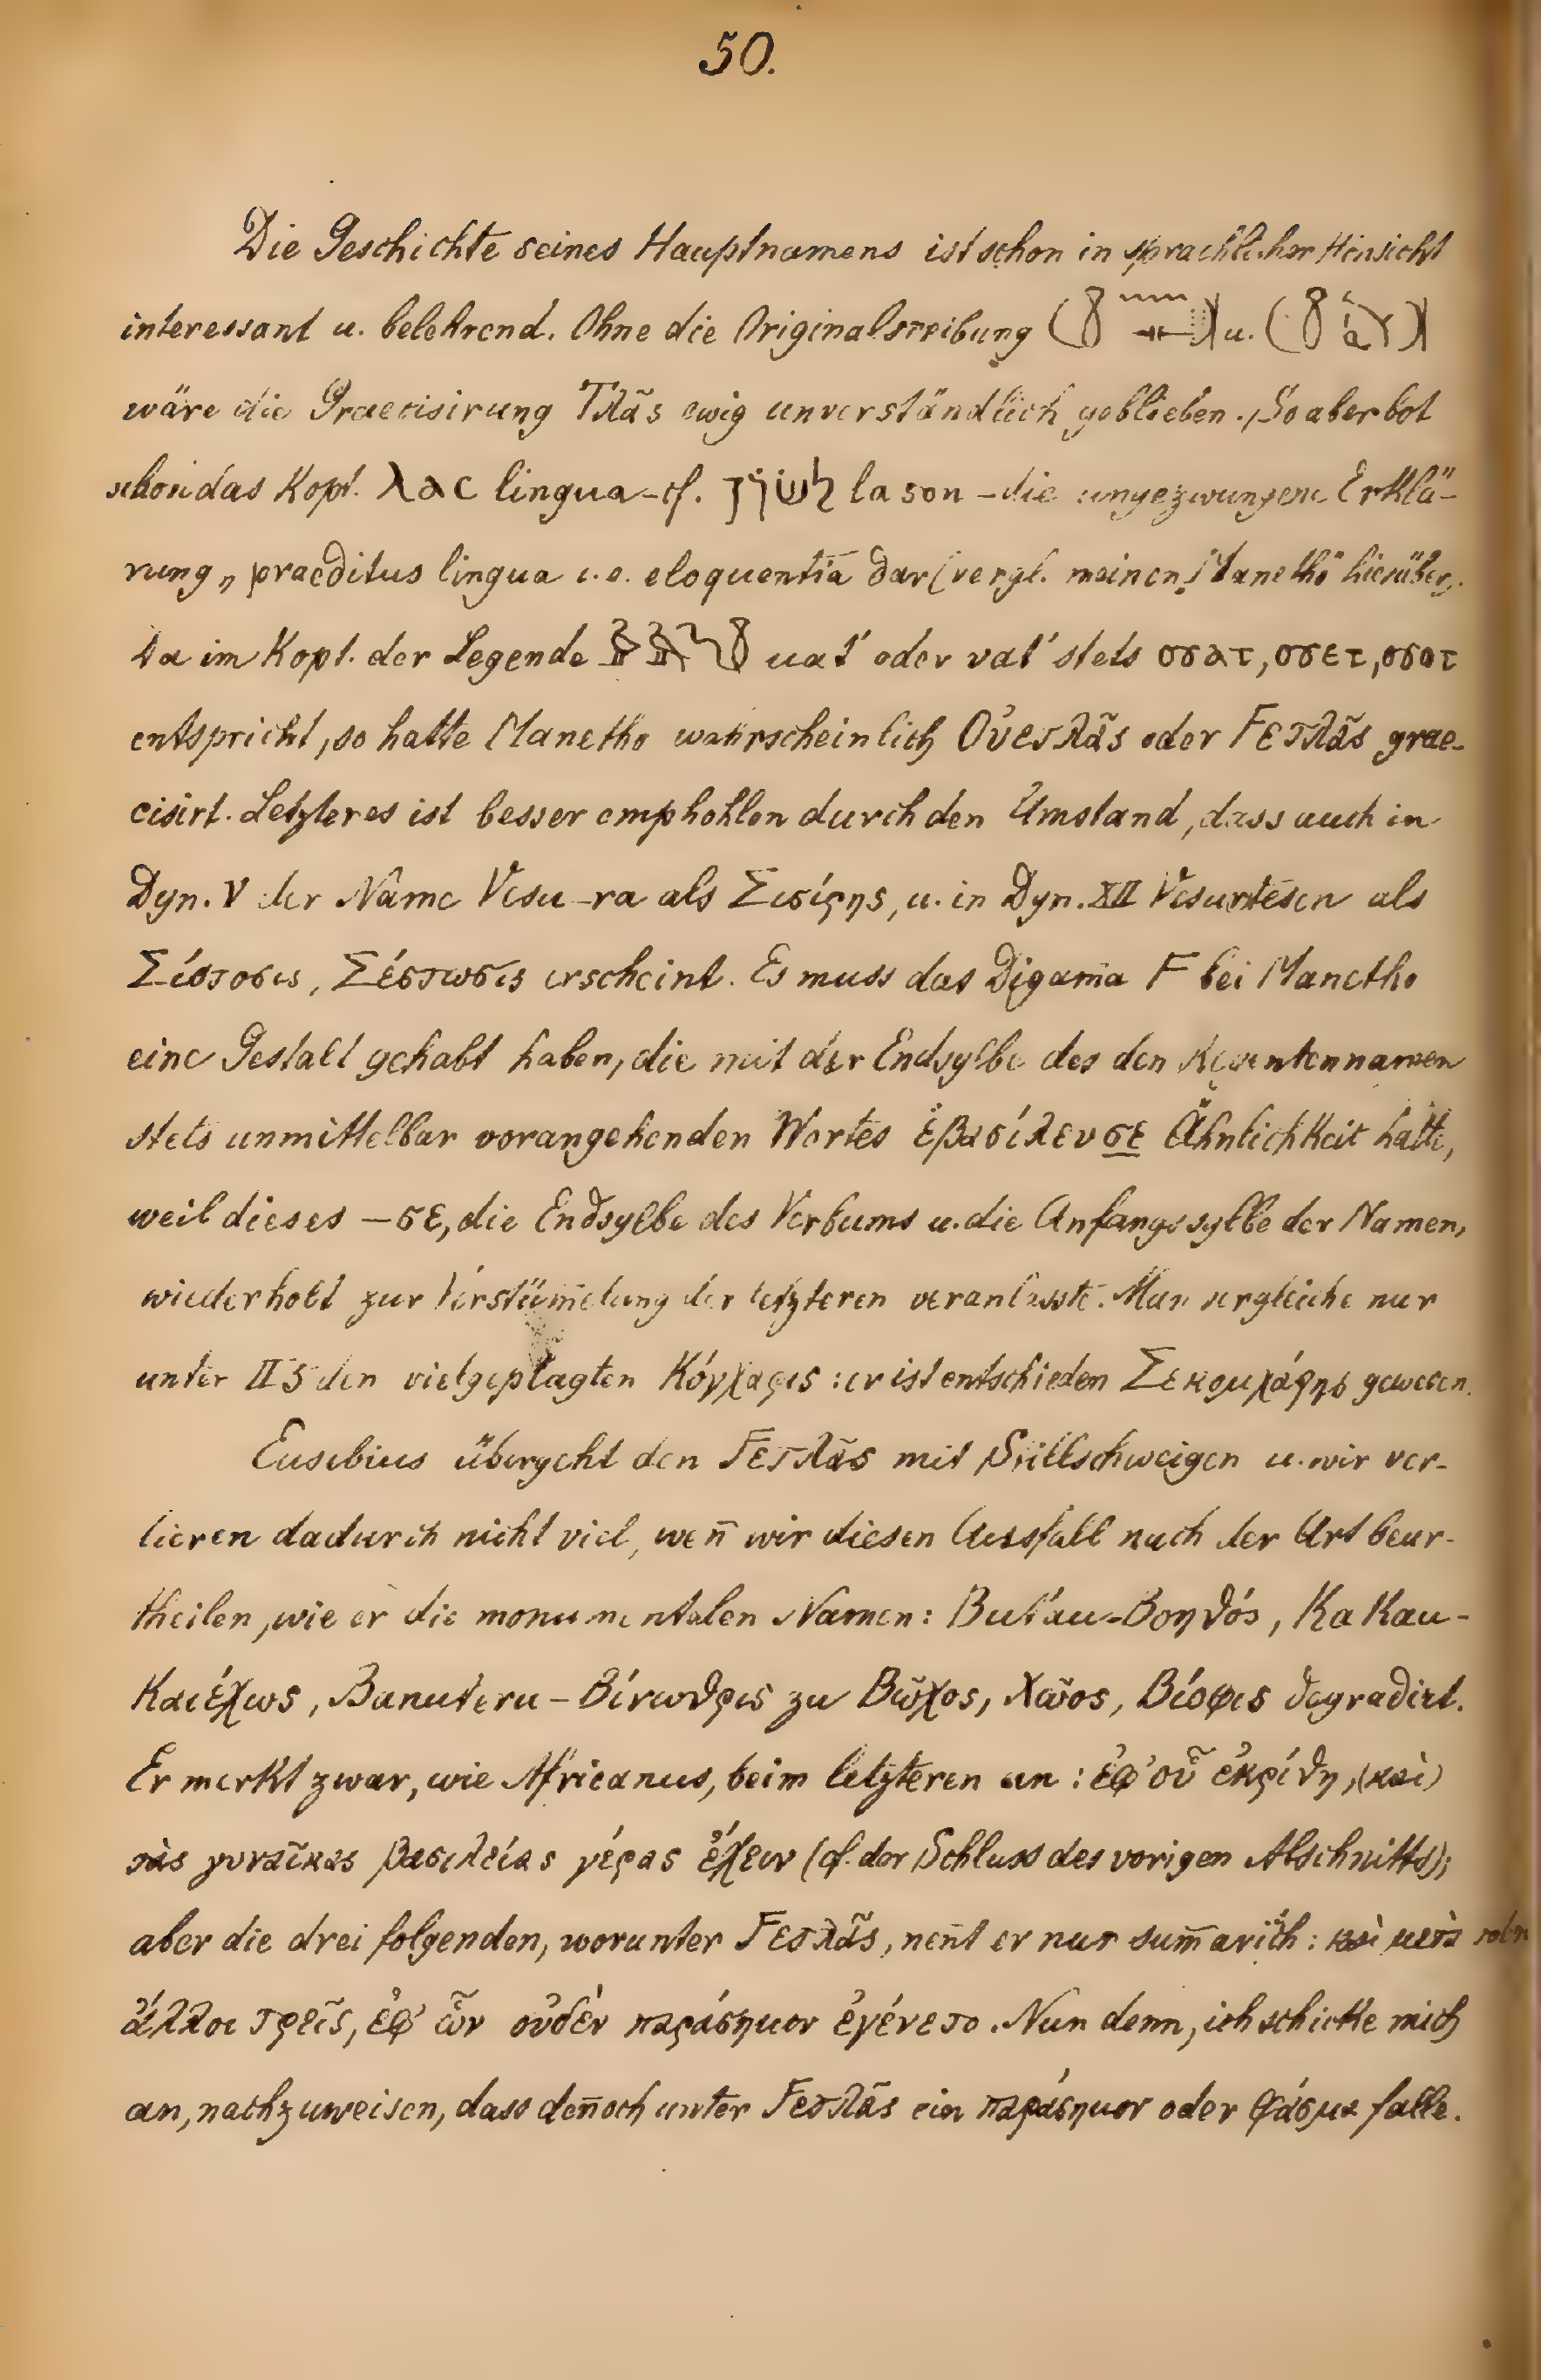 50.
Die Geschichte seines Hauptnamens ist schon in sprachlicher Hinsicht
interessant u. belehrend. Ohne die Originalsreibung ( ) u. ( )
wäre die Graecisirung Τλᾶς ewig unverständlich geblieben. So aber bot
schon das Kopt. λας lingua - cf. לשׁוֹן lason - die ungezwungene Erklä-
rung „praeditus lingua i.e. eloquentia dar (vergl. meinen Manethō hierüber,
Da im Kopt. der Legende uat' oder vat' stets ουατ, ουετ, ουοτ
entspricht, so hatte Manetho wahrscheinlich Οὐετλᾶς oder Ϝετλᾶς grae-
cisirt. Letzteres ist besser emphohlen durch den Umstand, dass auch in
Dyn. V der Name Vesu-ra als Σισίρης, u. in Dyn. XII Vesurtesen als
Σέστοσις, Σέστωσις erscheint. Es muss das Digam̄a Ϝ bei Manetho
eine Gestalt gehabt haben, die mit der Endsylbe des den Regentennamen
stets unmittelbar vorangehenden Wortes ἐβασίλευσε Ähnlichkeit hatte,
weil dieses —σε, die Endsylbe des Verbums u. die Anfangssylbe der Namen,
wiederholt zur Verstüm̄elung der letzteren veranlasste. Man vergleiche nur
unter II 5 den vielgeplagten Κόγχαρις: er ist entschieden Σεκομχάρης gewesen.
Eusebius übergeht den Ϝετλᾶς mit Stillschweigen u. wir ver-
lieren dadurch nicht viel, wen̄ wir diesen Ausfall nach der Art beur-
theilen, wie er die monumentalen Namen: But'au-Βοηθός, Ka Kau-
Καιέχως, Banuteru-Βίνωθρις zu Βῶχος, Χῶος, Βίοφις degradirt.
Er merkt zwar, wie Africanus, beim letzteren an: ἐφ' οὗ ἐκρίθη, (καὶ)
τὰς γυναῖκας βασιλείας γέρας ἔχειν (cf. der Schluss des vorigen Abschnitts);
aber die drei folgenden, worunter Ϝετλᾶς, nen̄t er nur sum̄arisch: καὶ μετὰ
ἄλλοι τρεῖς, ἐφ' ὧν οὐδὲν παράσημον ἐγένετο. Nun denn, ich schicke mich
an, nachzuweisen, dass den̄och unter Ϝετλᾶς ein παράσημον oder φάσμα falle.